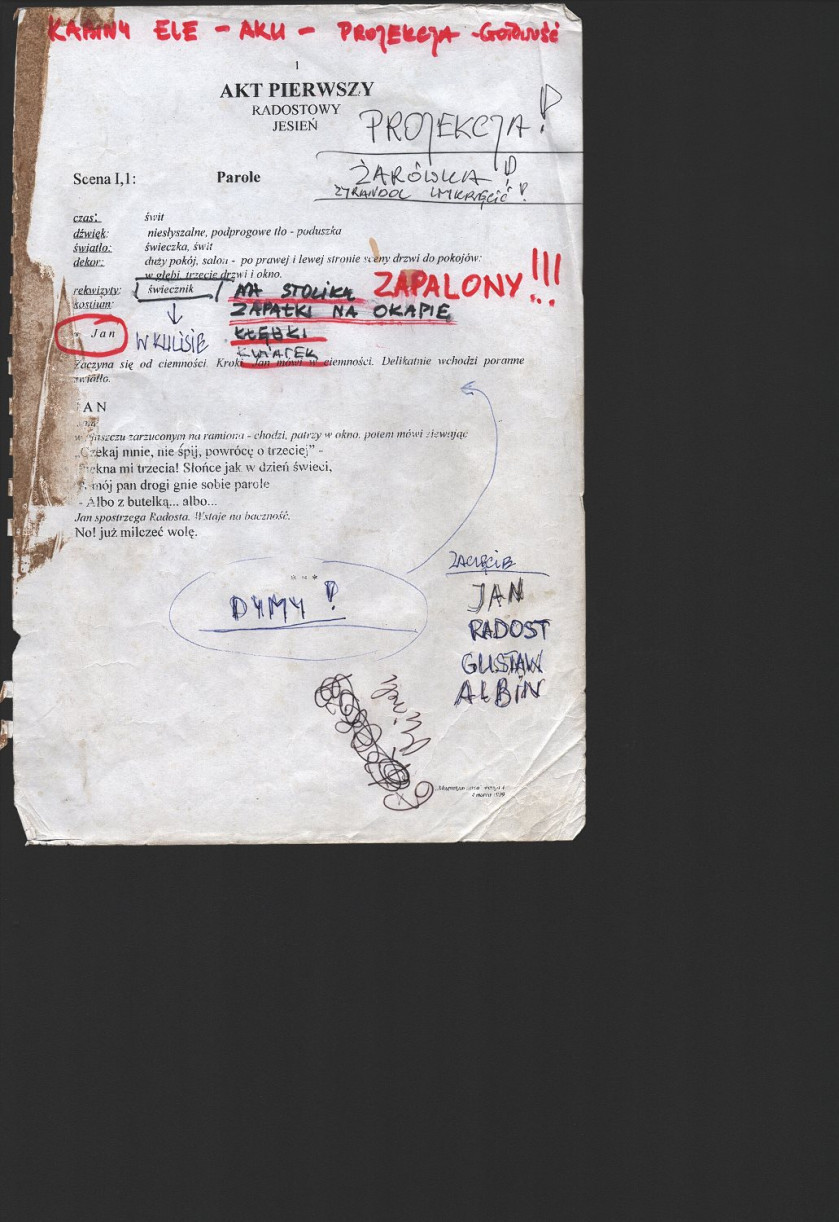 KABINY ELE - AKU - PROJEKCJA - GOTOWOŚĆ
1
AKT PIERWSZY
RADOSTOWY
JESIEŃ
PROJEKCJA!
Scena I,1: Parole
ŻARÓWKA!
ŻYRANDOL WYKRĘCIĆ!
czas: świt
dźwięk: niesłyszalne, podprogowe tło - poduszka
światło: świeczka, świt
dekor: duży pokój, salon - po prawej i lewej stronie sceny drzwi do pokojów:
w głębi trzecie drzwi i okno.
rekwizyty: świecznik NA STOLIKU ZAPALONY!!!
kostium: ZAPAŁKI NA OKAPIE
Jan W KULISIE KŁĘBKI
KWIATEK
Zaczyna się od ciemności. Kroki. Jan mówi w ciemności. Delikatnie wchodzi poranne
światło.
JAN
w płaszczu zarzuconym na ramiona - chodzi, patrzy w okno, potem mówi ziewając
„Czekaj mnie, nie śpij, powrócę o trzeciej” -
Piękna mi trzecia! Słońce jak w dzień świeci,
mój pan drogi gnie sobie parole
- Albo z butelką... albo...
Jan spostrzega Radosta. Wstaje na baczność.
No! już milczeć wolę.
* * *
DYMY!
ZACIĘCIE
JAN
RADOST
GUSTAW
ALBIN